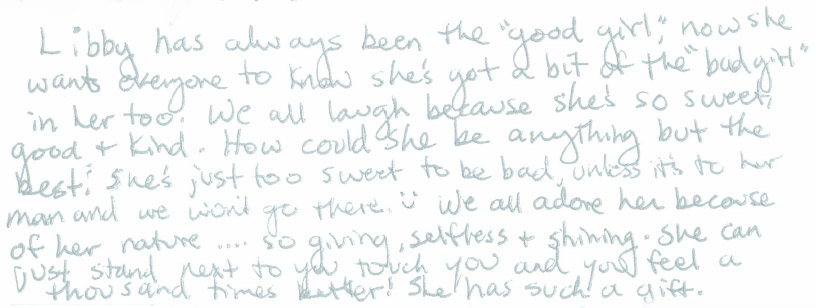 Libby has always been the "good girl", now she
wants everyone to know she's got a bit of the "bad girl"
in her too. We all laugh because she's so sweet,
good + kind. How could she be anything but the
best! She's just too sweet to be bad, unless it's to her
man and we won't go there. :) We all adore her because
of her nature .... so giving, selfless + shining. She can
just stand next to you touch you and you feel a
thousand times better! She has such a gift.